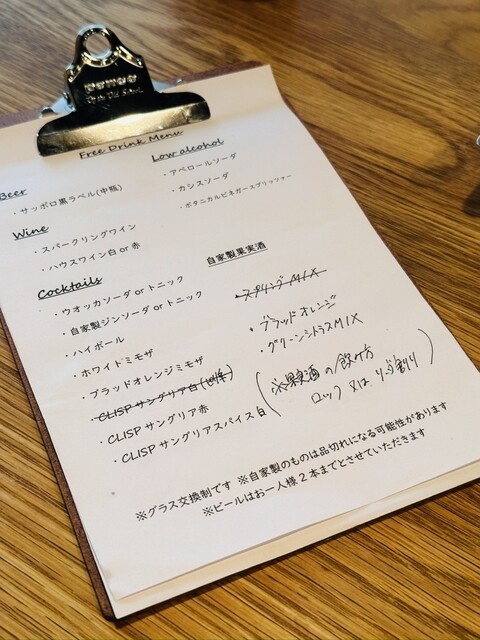 PENCO
Free Drink Menu
Beer
・サッポロ黒ラベル(中瓶)
Wine
・スパークリングワイン
・ハウスワイン白 or 赤
Cocktails
・ウオッカソーダ or トニック
・自家製ジンソーダ or トニック
・ハイボール
・ホワイトミモザ
・ブラッドオレンジミモザ
・CLISP サングリア白
・CLISP サングリア赤
・CLISP サングリアスパイス白
Low alcohol
・アペロールソーダ
・カシスソーダ
・ボタニカルビネガースプリッツァー
自家製果実酒
・スプリングMIX
・ブラッドオレンジ
・グリーンシトラスMIX
(※果実酒の飲み方
ロック 又は ソーダ割り)
※グラス交換制です ※自家製のものは品切れになる可能性があります
※ビールはお一人様2本までとさせていただきます